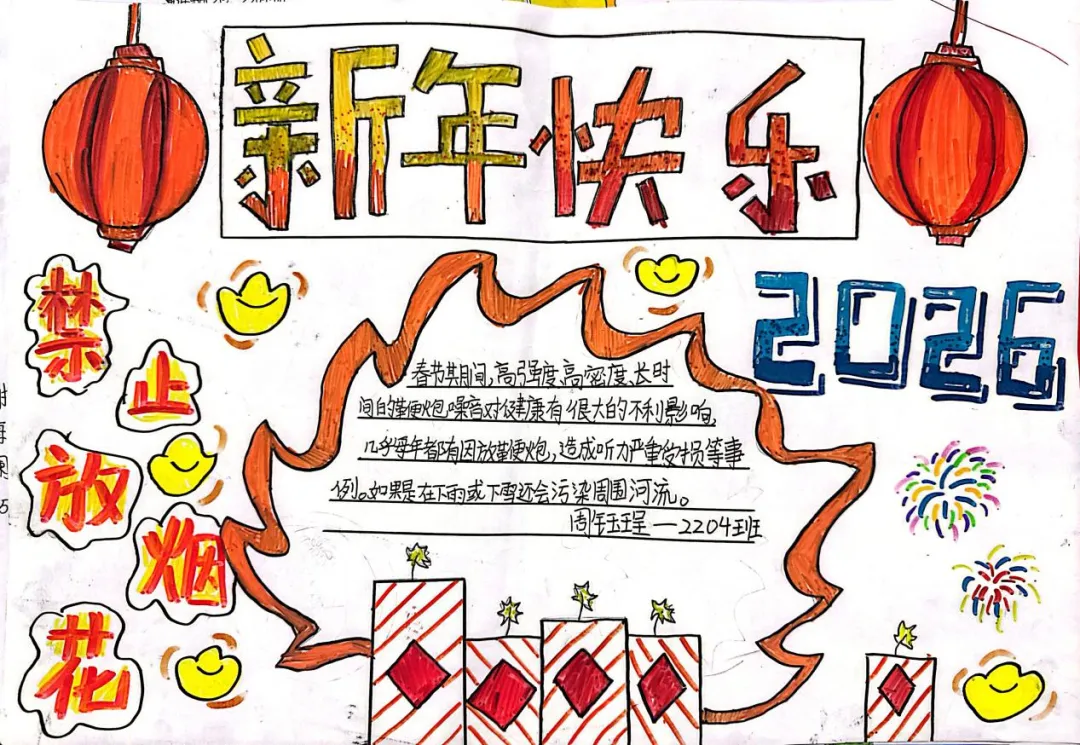 新年快乐
2026
禁
止
放
烟
花
春节其期间,高引强度、高密度、长时
间的鞭炮噪音对健康有很大的不利影响,
几乎每年都有因放鞭炮,造成听力严重受损等事
例。如果是在下雨或下雪还会污染周围河流。
2204班